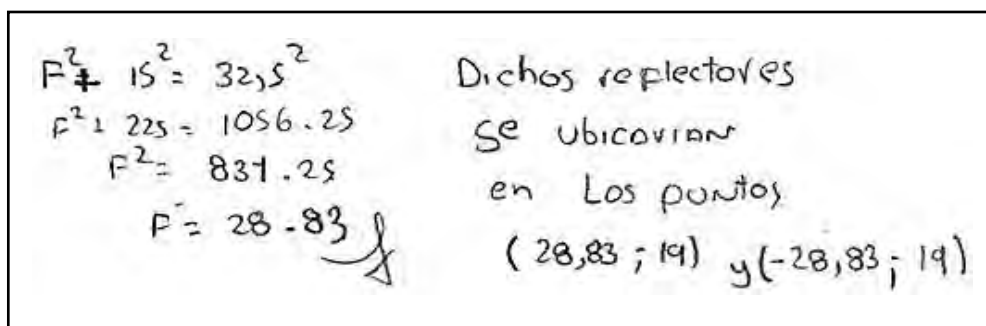 F² + 15² = 32,5²
F² + 225 = 1056.25
F² = 831.25
F = 28.83
Dichos reflectores
se ubicarian
en Los puntos
(28,83 ; 19) y (-28,83 ; 19)